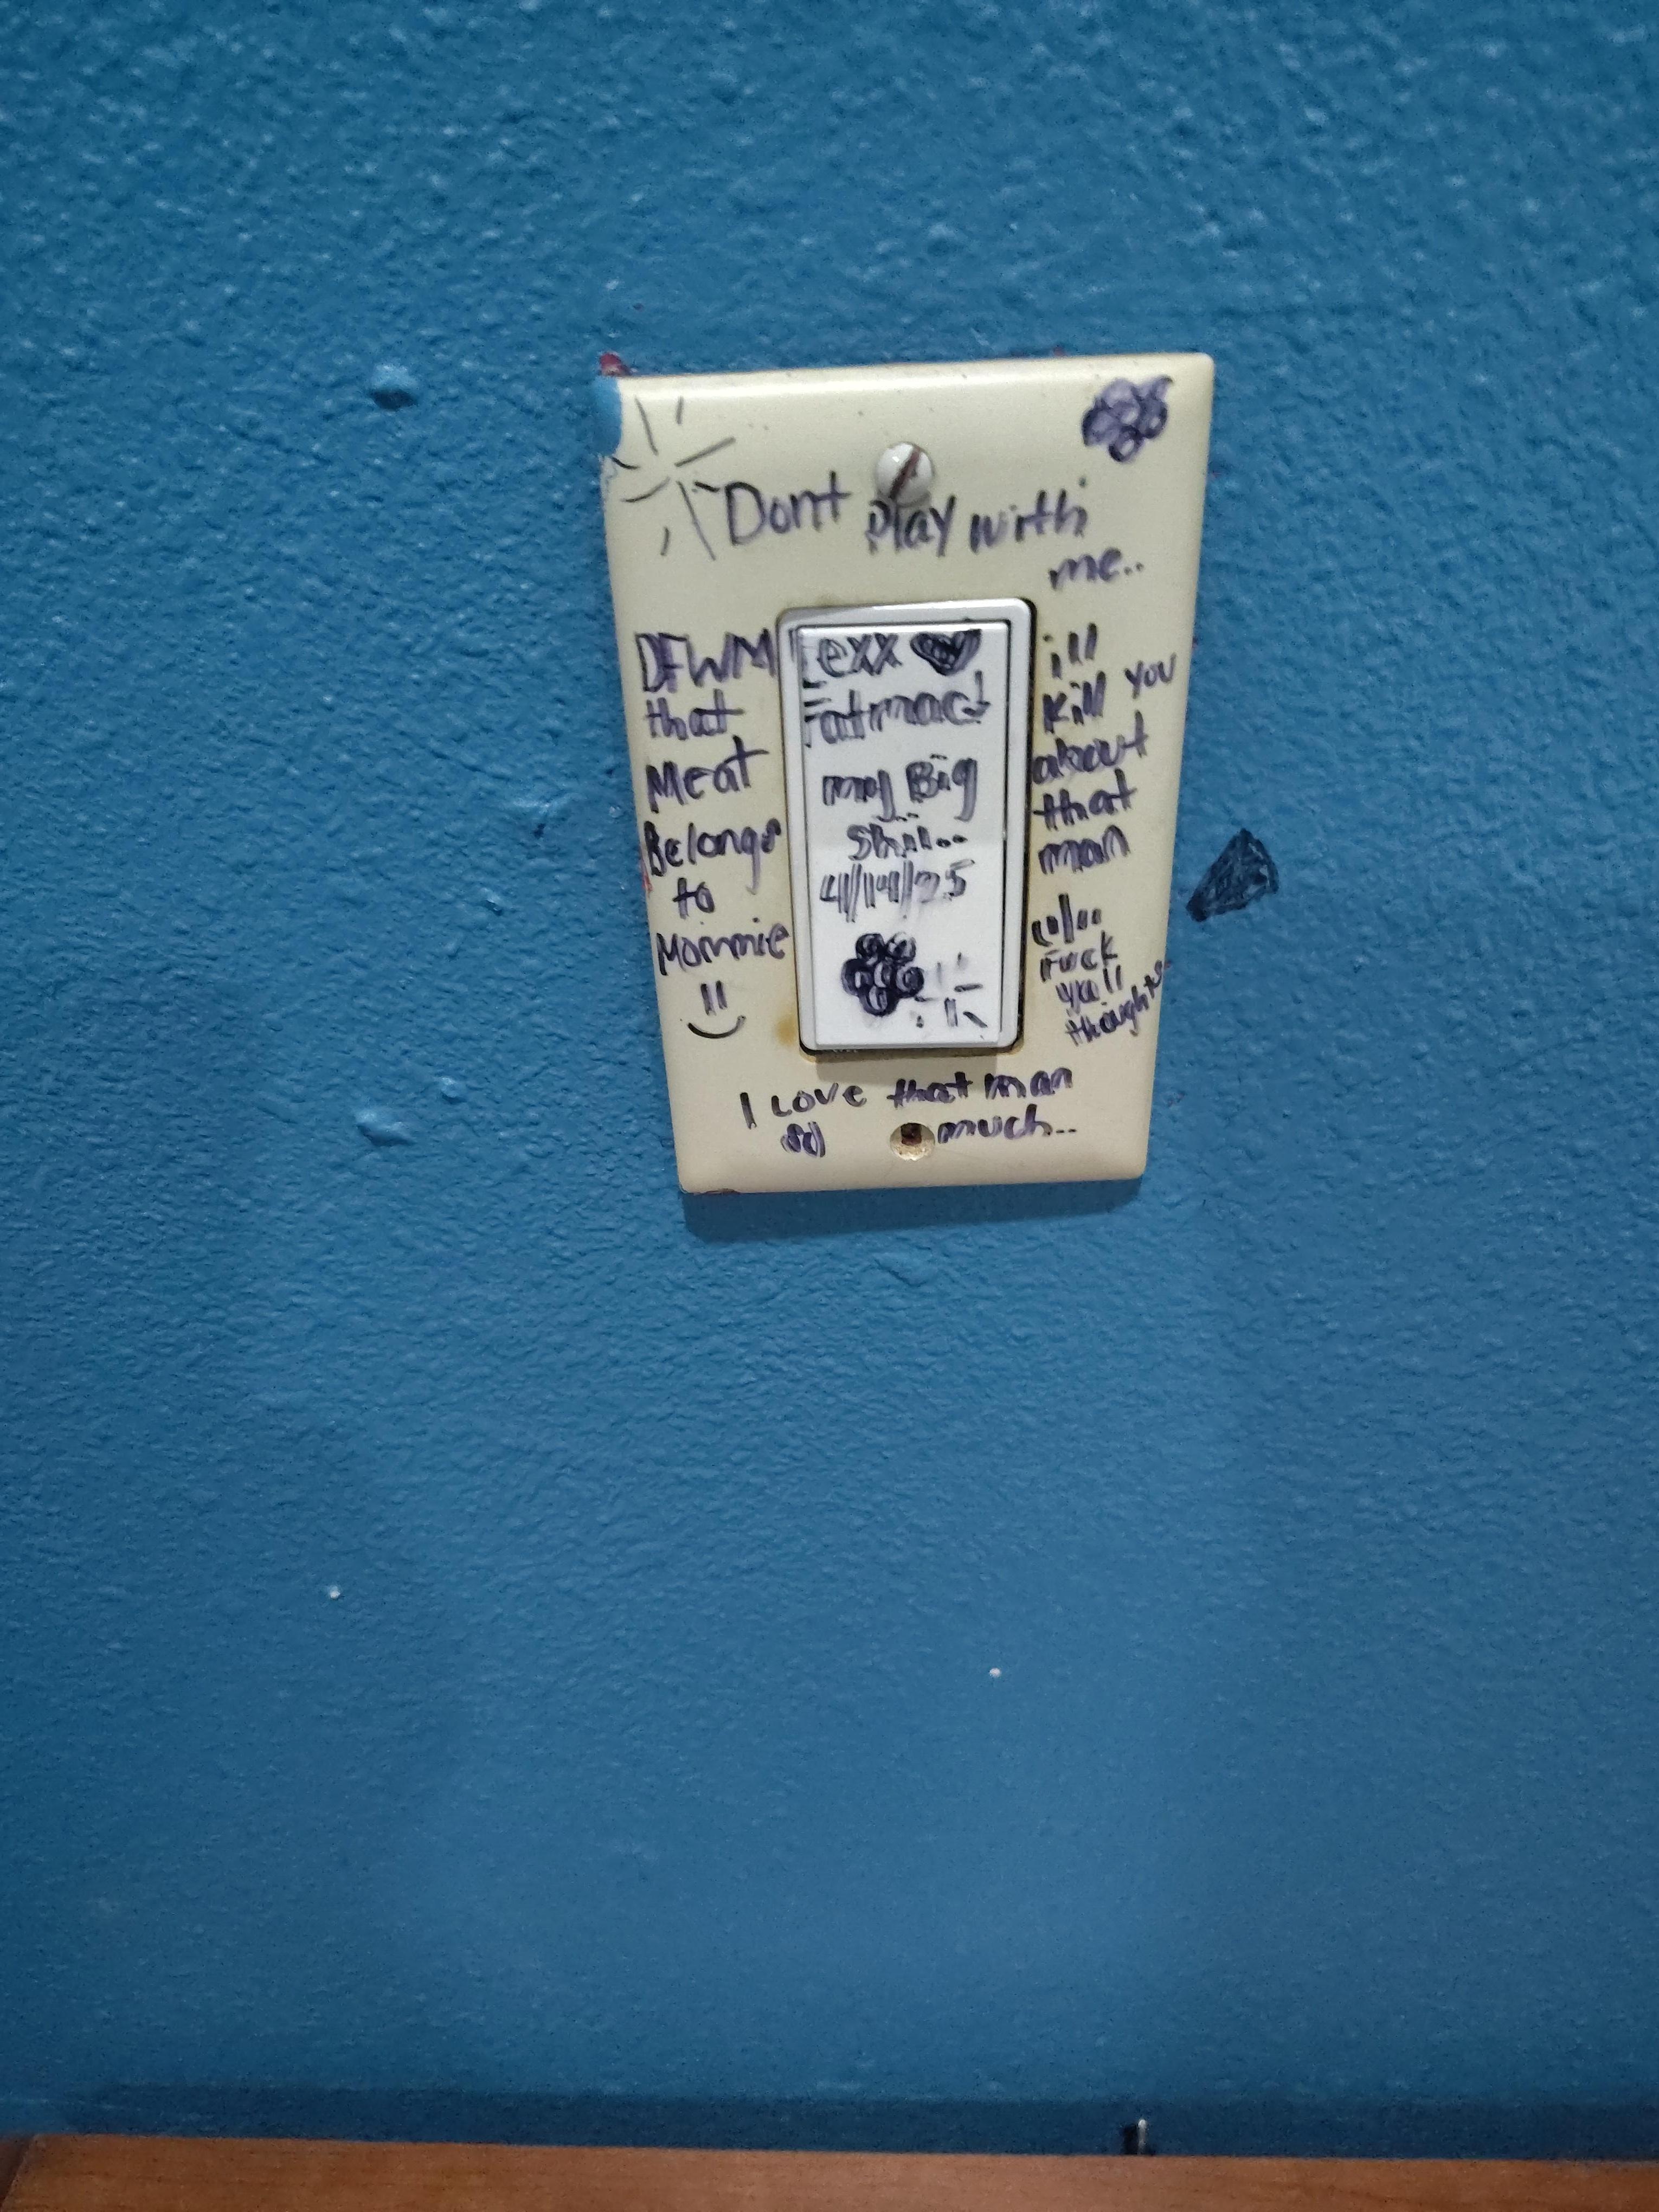 Dont Play with
me..
DFWM
that
Meat
Belongs
to
Mommie
Lexx
Fatmact
my Big
4/14/25
ill
Kill you
about
that
man
Fuck
yall
thoughts
I Love that man
so much..